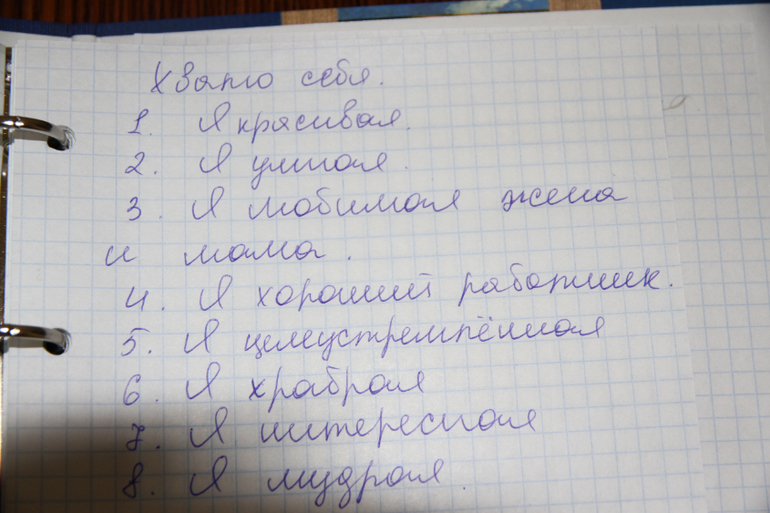 Хвалю себя.
1. Я красивая.
2. Я умная.
3. Я любимая жена
и мама.
4. Я хороший работник.
5. Я целеустремлённая
6. Я храбрая
7. Я интересная
8. Я мудрая.